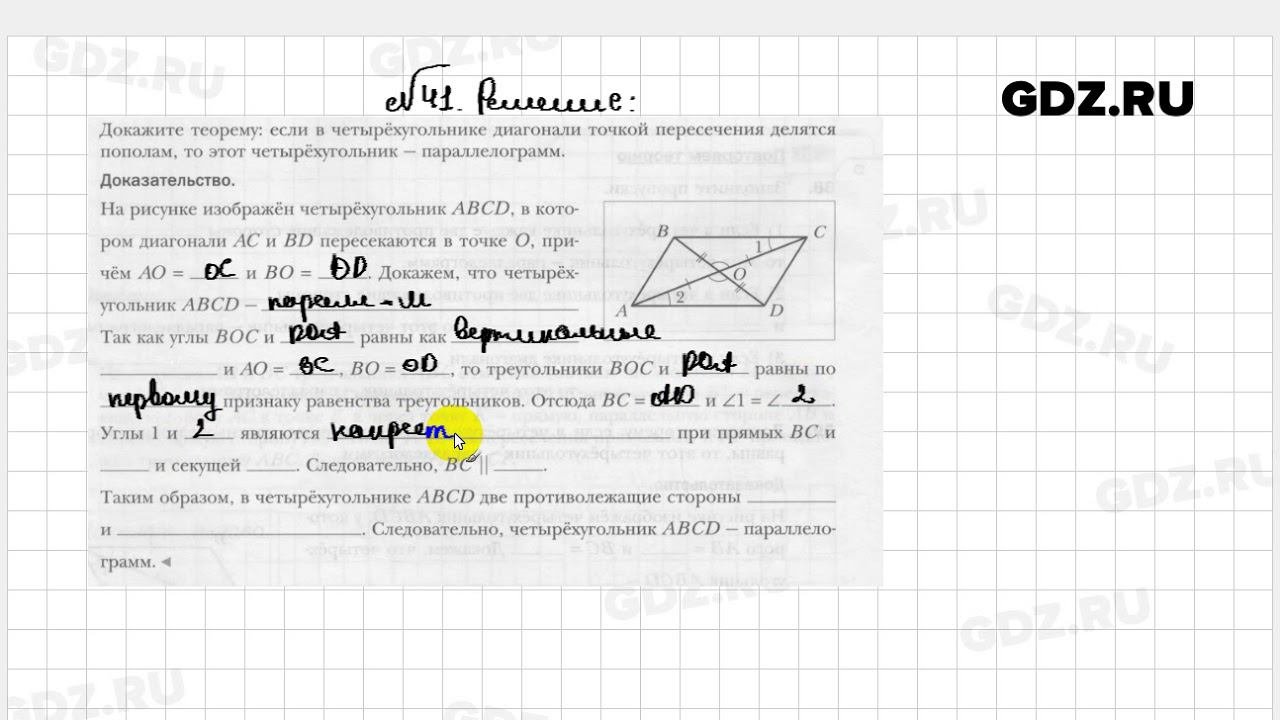 GDZ.RU
№41. Решение:
Докажите теорему: если в четырёхугольнике диагонали точкой пересечения делятся
пополам, то этот четырёхугольник — параллелограмм.
Доказательство.
На рисунке изображён четырёхугольник ABCD, в кото-
ром диагонали AC и BD пересекаются в точке O, при-
чём AO = OC и BO = OD. Докажем, что четырёх-
угольник ABCD — паралл-м
B C 1 O 2 A D
Так как углы BOC и равны как вертикальные
и AO = OD, то треугольники BOC и равны по
первому признаку равенства треугольников. Отсюда BC = AD и ∠1 = ∠ 2.
Углы 1 и 2 являются накрест при прямых BC и
и секущей . Следовательно, BC ||  .
Таким образом, в четырёхугольнике ABCD две противолежащие стороны
и . Следовательно, четырёхугольник ABCD — параллело-
грамм. ◄